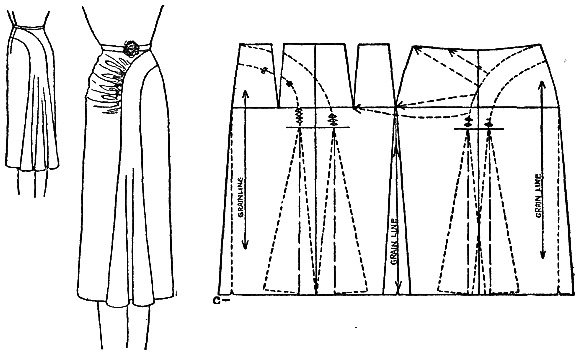 GRAINLINE
GRAIN LINE
GRAIN LINE
C-